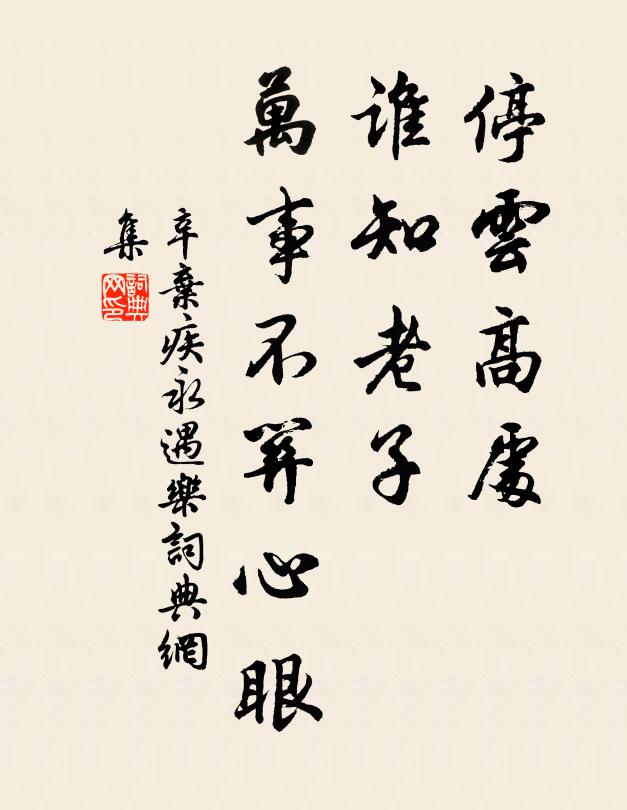 停雲高處
誰知老子
萬事不關心眼
辛棄疾永遇樂詞典網
集
詞典
网印